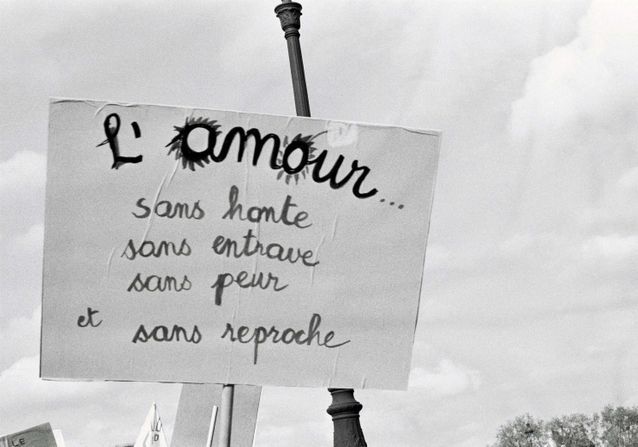 L'amour...
sans honte
sans entrave
sans peur
et sans reproche
LE